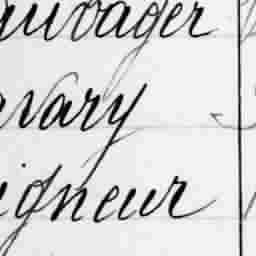 auvager
avary
igneur